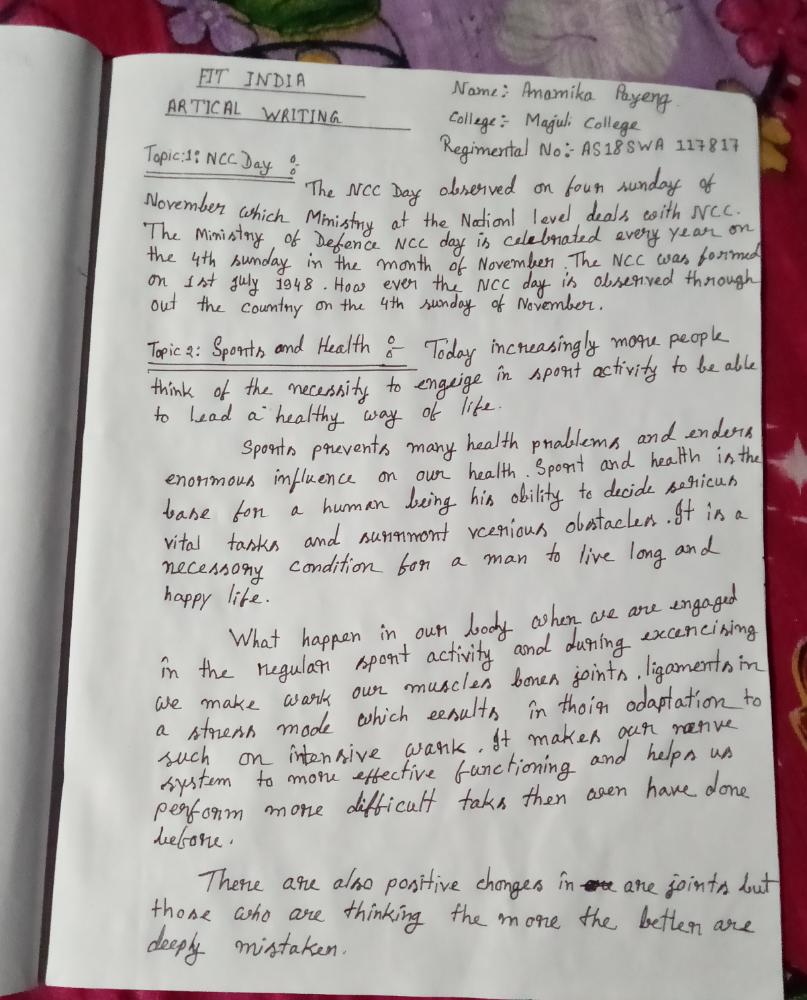 FIT INDIA
ARTICAL WRITING
Name:- Anamika Payeng
College:- Majuli College
Regimental No:- AS18SWA 117817
Topic:1: NCC Day :-
The NCC Day observed on four sunday of
November which Ministry at the Nationl level deals with NCC.
The Ministry of Defence NCC day is celebrated every year on
the 4th sunday in the month of November. The NCC was formed
on 1st july 1948. How ever the NCC day is observed through
out the country on the 4th sunday of November.
Topic 2: Sports and Health :- Today increasingly more people
think of the necessity to engeige in sport activity to be able
to lead a healthy way of life.
Sports prevents many health problems and enders
enormous influence on our health. Sport and health is the
base for a human being his ability to decide sericus
vital tasks and surnmont vcerious obstacles. It is a
necessory condition for a man to live long and
happy life.
What happen in our body when we are engaged
in the regular sport activity and during excercising
we make work our muscles bones joints. ligaments in
a stress mode which eesults in thoir adaptation to
such on intensive work. It makes our nerve
system to more effective functioning and helps us
perform more difficult taks then aven have done
before.
There are also positive changes in are joints but
those who are thinking the more the better are
deeply mistaken.